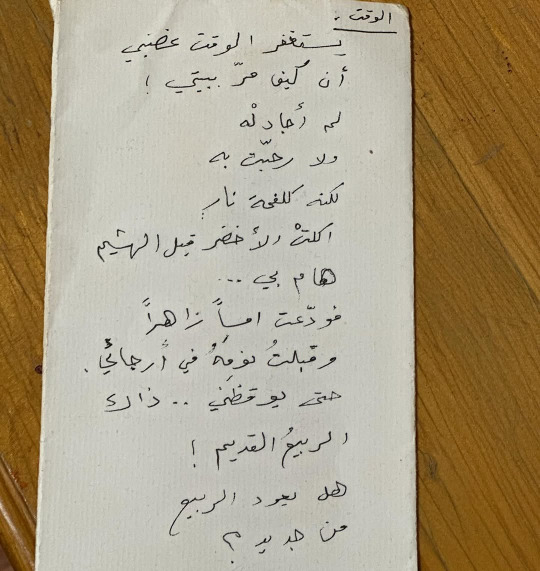 الوقت :
يستغفر الوقت غضبي
أن كيف مرّ ببيتي !
لم أجادلْه
ولا رحّبت به
لكنه كلفحة نارٍ
اكلتْ الأخضر قبل الهشيم
هام بي ...
فودّعت امساً زاهراً
وقبلتُ يومهُ في أرجائي.
حتى يوقظني .. ذاك
الربيعُ القديم !
هل يعود الربيع
من جديد ؟